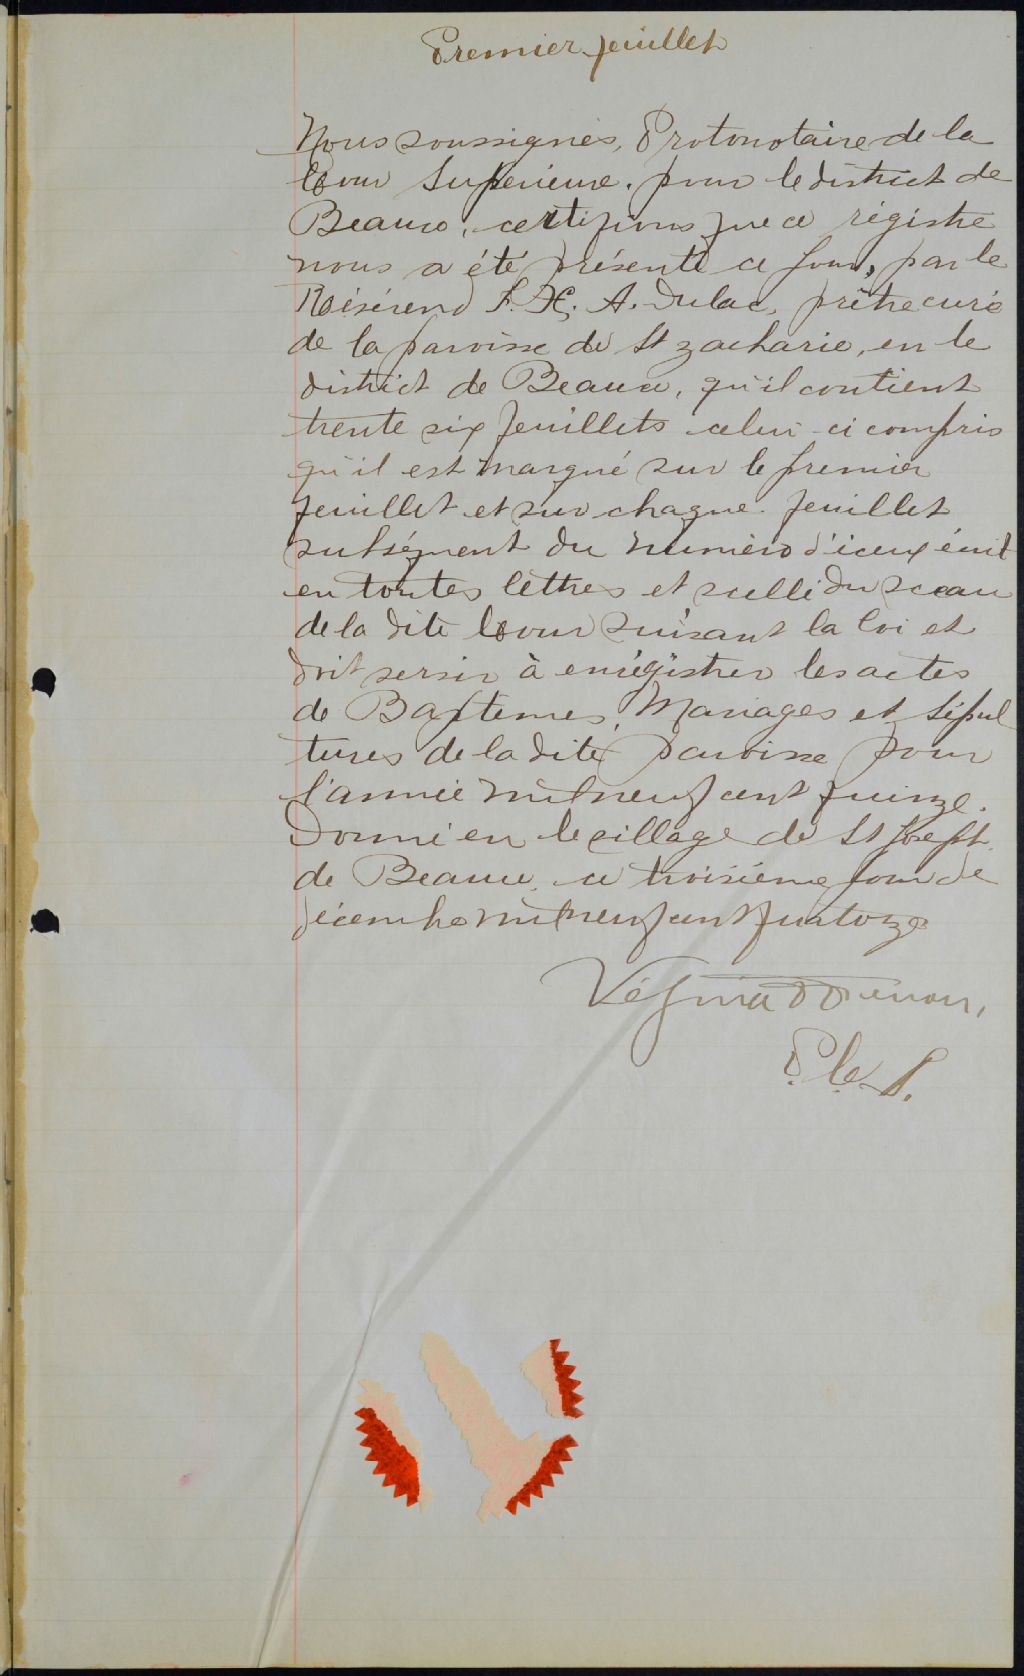 Premier feuillet
Nous soussignés, Protonotaire de la
Cour Supérieure. pour le district de
Beauce, certifions que ce régistre
nous a été présenté ce jour, par le
Révérend F. X. A. Dulac, prêtre curé
de la paroisse de St Zacharie, en le
district de Beauce, qu'il contient
trente six feuillets celui-ci compris
qu'il est marqué sur le premier
feuillet et sur chaque feuillet
subséquent du numéro d'iceux écrit
en toutes lettres et scellé du sceau
de la dite Cour suivant la loi et
doit servir à enrégistrer les actes
de Baptemes, Mariages et Sépul
tures de la dite paroisse pour
l'année mil neuf cent quinze.
Donné en le village de St Joseph
de Beauce, ce troisième jour de
décembre mil neuf cent quatorze
Vézina
P. C. S.